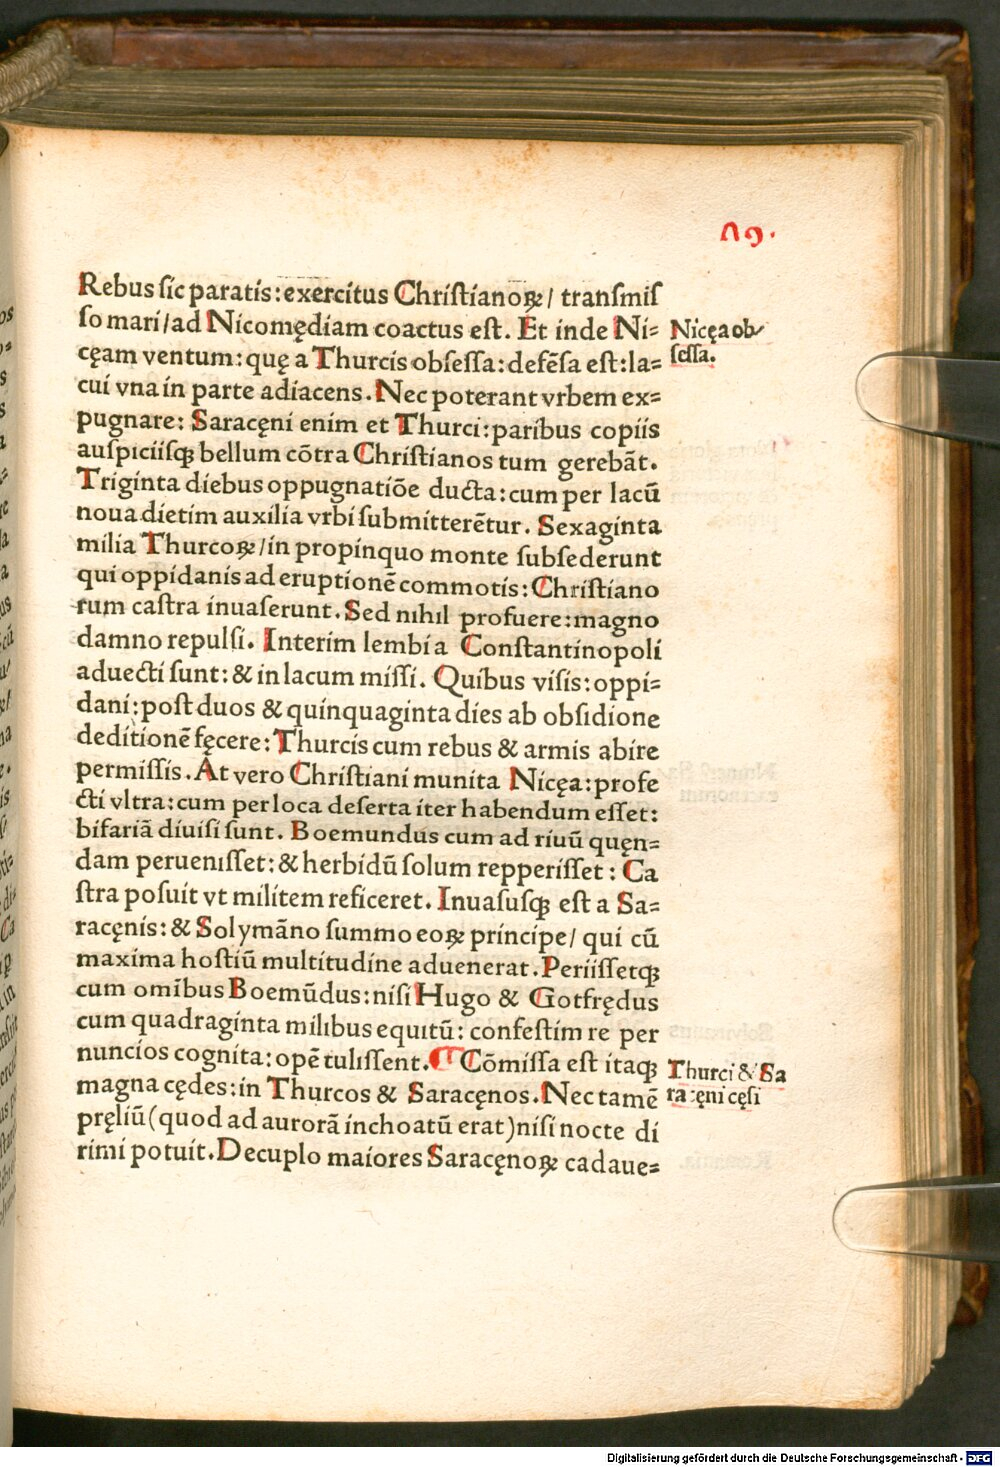 Λ9.
Rebus ſic paratis: exercitus Chriſtianoꝝ / tranſmiſ
ſo mari / ad Nicomędiam coactus eſt. Et inde Ni=
cęam ventum: quę a Thurcis obſeſſa: defẽſa eſt: la=
cui vna in parte adiacens. Nec poterant vrbem ex=
pugnare: Saracęni enim et Thurci: paribus copiis
auſpiciisqꝫ bellum cõtra Chriſtianos tum gerebãt.
Triginta diebus oppugnatiõe ducta: cum per lacũ
noua dietim auxilia vrbi ſubmitterẽtur. Sexaginta
milia Thurcoꝝ / in propinquo monte ſubſederunt
qui oppidanis ad eruptionẽ commotis: Chriſtiano
rum caſtra inuaſerunt. Sed nihil profuere: magno
damno repulſi. Interim lembi a Conſtantinopoli
aduecti ſunt: & in lacum miſſi. Quibus viſis: oppi=
dani: poſt duos & quinquaginta dies ab obſidione
deditionẽ fęcere: Thurcis cum rebus & armis abire
permiſſis. At vero Chriſtiani munita Nicęa: profe
cti vltra: cum per loca deſerta iter habendum eſſet:
bifariã diuiſi ſunt. Boemundus cum ad riuũ quęn=
dam perueniſſet: & herbidũ ſolum repperiſſet: Ca
ſtra poſuit vt militem reficeret. Inuaſusqꝫ eſt a Sa=
racęnis: & Solymãno ſummo eoꝝ principe / qui cũ
maxima hoſtiũ multitudine aduenerat. Periiſſetqꝫ
cum omĩbus Boemũdus: niſi Hugo & Gotfrędus
cum quadraginta milibus equitũ: confeſtim re per
nuncios cognita: opẽ tuliſſent. ¶ Cõmiſſa eſt itaqꝫ
magna cędes: in Thurcos & Saracęnos. Nec tamẽ
pręliũ (quod ad aurorã inchoatũ erat) niſi nocte di
rimi potuit. Decuplo maiores Saracęnoꝝ cadaue=
Nicęa ob/
ſeſſa.
Thurci & Sa
racęni cęſi
Digitalisierung gefördert durch die Deutsche Forschungsgemeinschaft - DFG